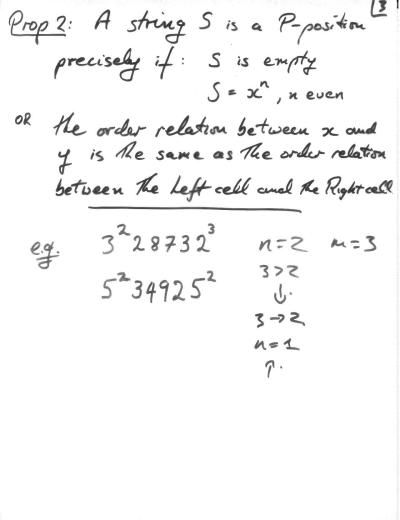 3
Prop 2: A string S is a P-position
precisely if: S is empty
S = xⁿ, n even
OR the order relation between x and
y is the same as the order relation
between the Left cell and the Right cell
e.g. 3²28732³ n=2 m=3
5²34925² 3>2
↓.
3→2
n=1
↑.